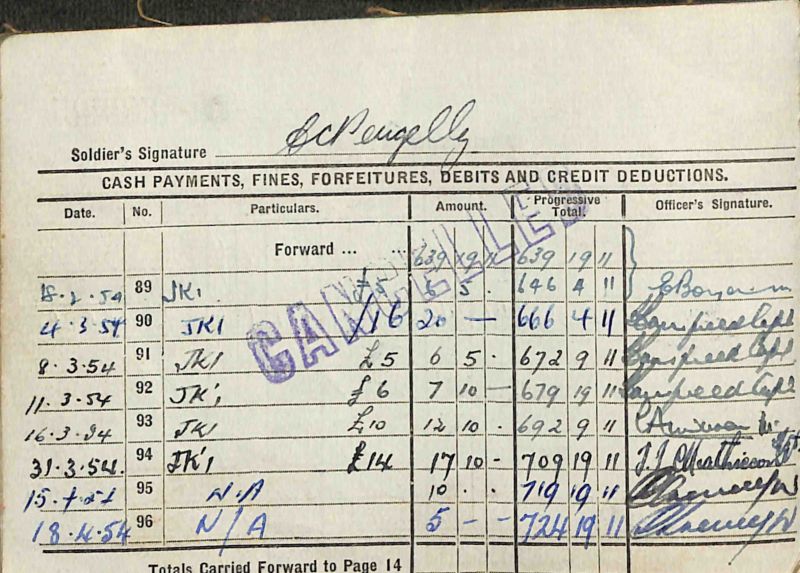 Soldier's Signature
CASH PAYMENTS, FINES, FORFEITURES, DEBITS AND CREDIT DEDUCTIONS.
Date. No. Particulars. Amount. Progressive Total. Officer's Signature.
Forward ... ... 639 19 11 639 19 11
18.2.54 89 JK1 £5 6 5 . 646 4 11
4.3.54 90 JK1 £16 20 — 666 4 11
8.3.54 91 JK1 £5 6 5 . 672 9 11
11.3.54 92 JK1 £6 7 10 — 679 19 11
16.3.54 93 JK1 £10 12 10 . 692 9 11
31.3.54. 94 JK1 £14 17 10 - 709 19 11 Mathieson
95 N.A 10 . . 719 19 11
18.4.54 96 N/A 5 - - 724 19 11
Totals Carried Forward to Page 14
CANCELLED